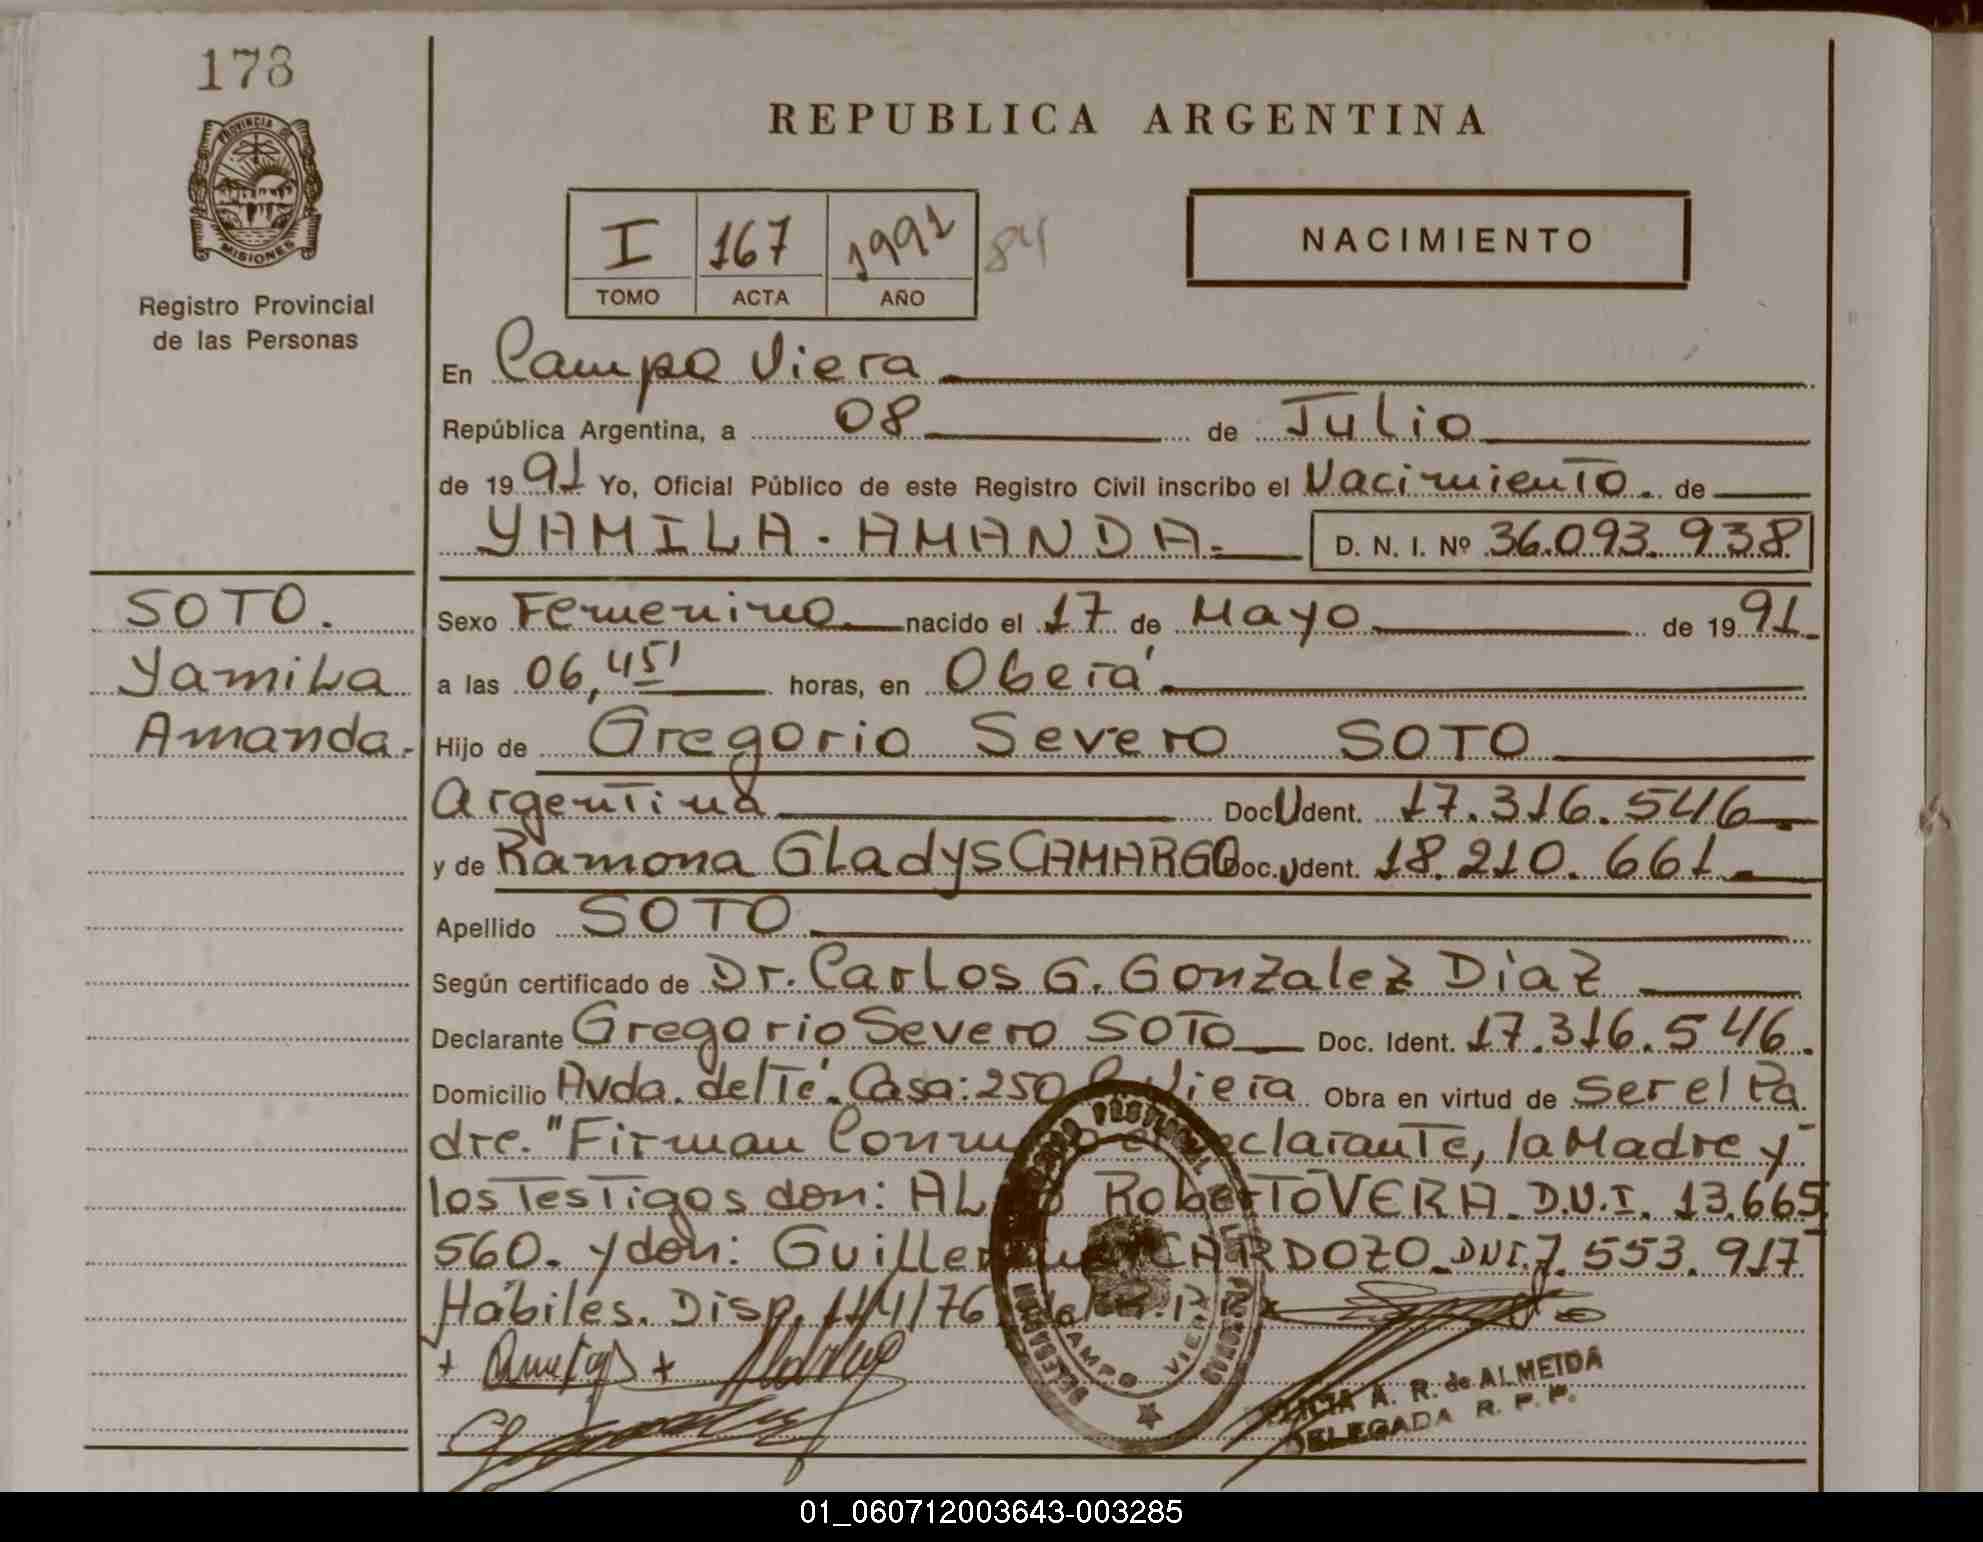 178
PROVINCIA DE
MISIONES
Registro Provincial
de las Personas
REPUBLICA ARGENTINA
I 167 1991 84
TOMO ACTA AÑO
NACIMIENTO
En Campo Viera
República Argentina, a 08 de Julio
de 1991 Yo, Oficial Público de este Registro Civil inscribo el Nacimiento. de
YAMILA. AMANDA.= D. N. I. Nº 36.093.938
SOTO.
Yamila
Amanda.
Sexo Femenino nacido el 17 de Mayo de 1991.
a las 06,45' horas, en Oberá
Hijo de Gregorio Severo SOTO
Argentina Doc. Ident. 17.316.546
y de Ramona Gladys CAMARGO Doc. Ident. 18.210.661
Apellido SOTO
Según certificado de Dr. Carlos G. Gonzalez Diaz
Declarante Gregorio Severo SOTO Doc. Ident. 17.316.546.
Domicilio Avda. del Té. Casa: 250 Viera Obra en virtud de ser el Pa
dre. "Firman declarante, la Madre y
los Testigos don: Roberto VERA. D.N.I. 13.665
560. y don: CARDOZO. DNI. 7.553.917
Hábiles. Disp.
CAMPO VIERA
A. R. de ALMEIDA
DELEGADA R. P. P.
01_060712003643-003285